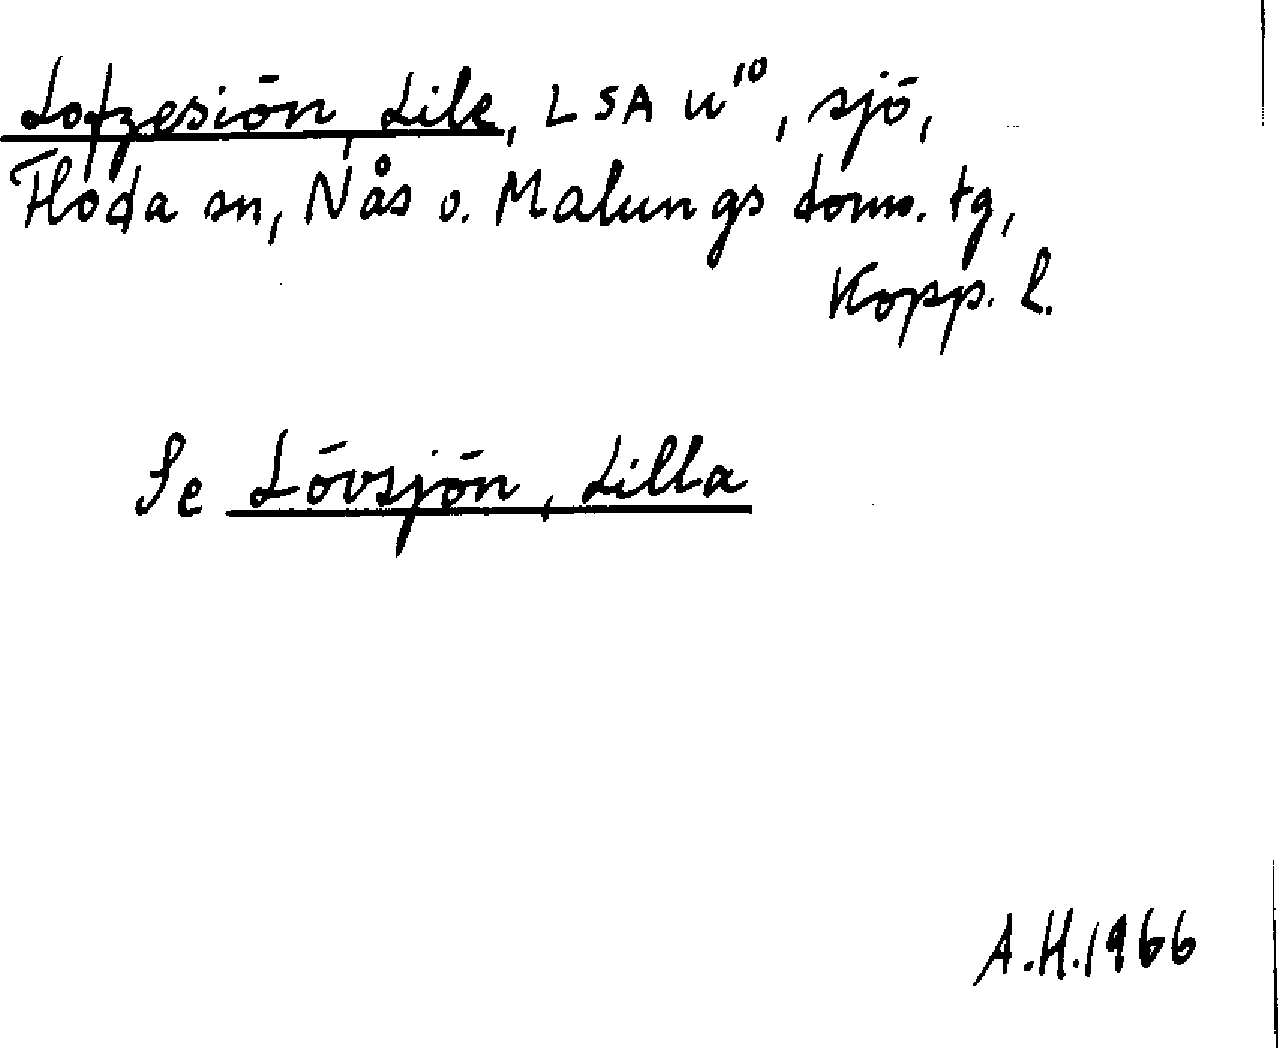 Lofzesiön, Lile, LSA u¹⁰, sjö,
Floda sn, Nås o. Malungs doms. tg,
Kopp. l.
Se Lövsjön, Lilla
A.H.1966